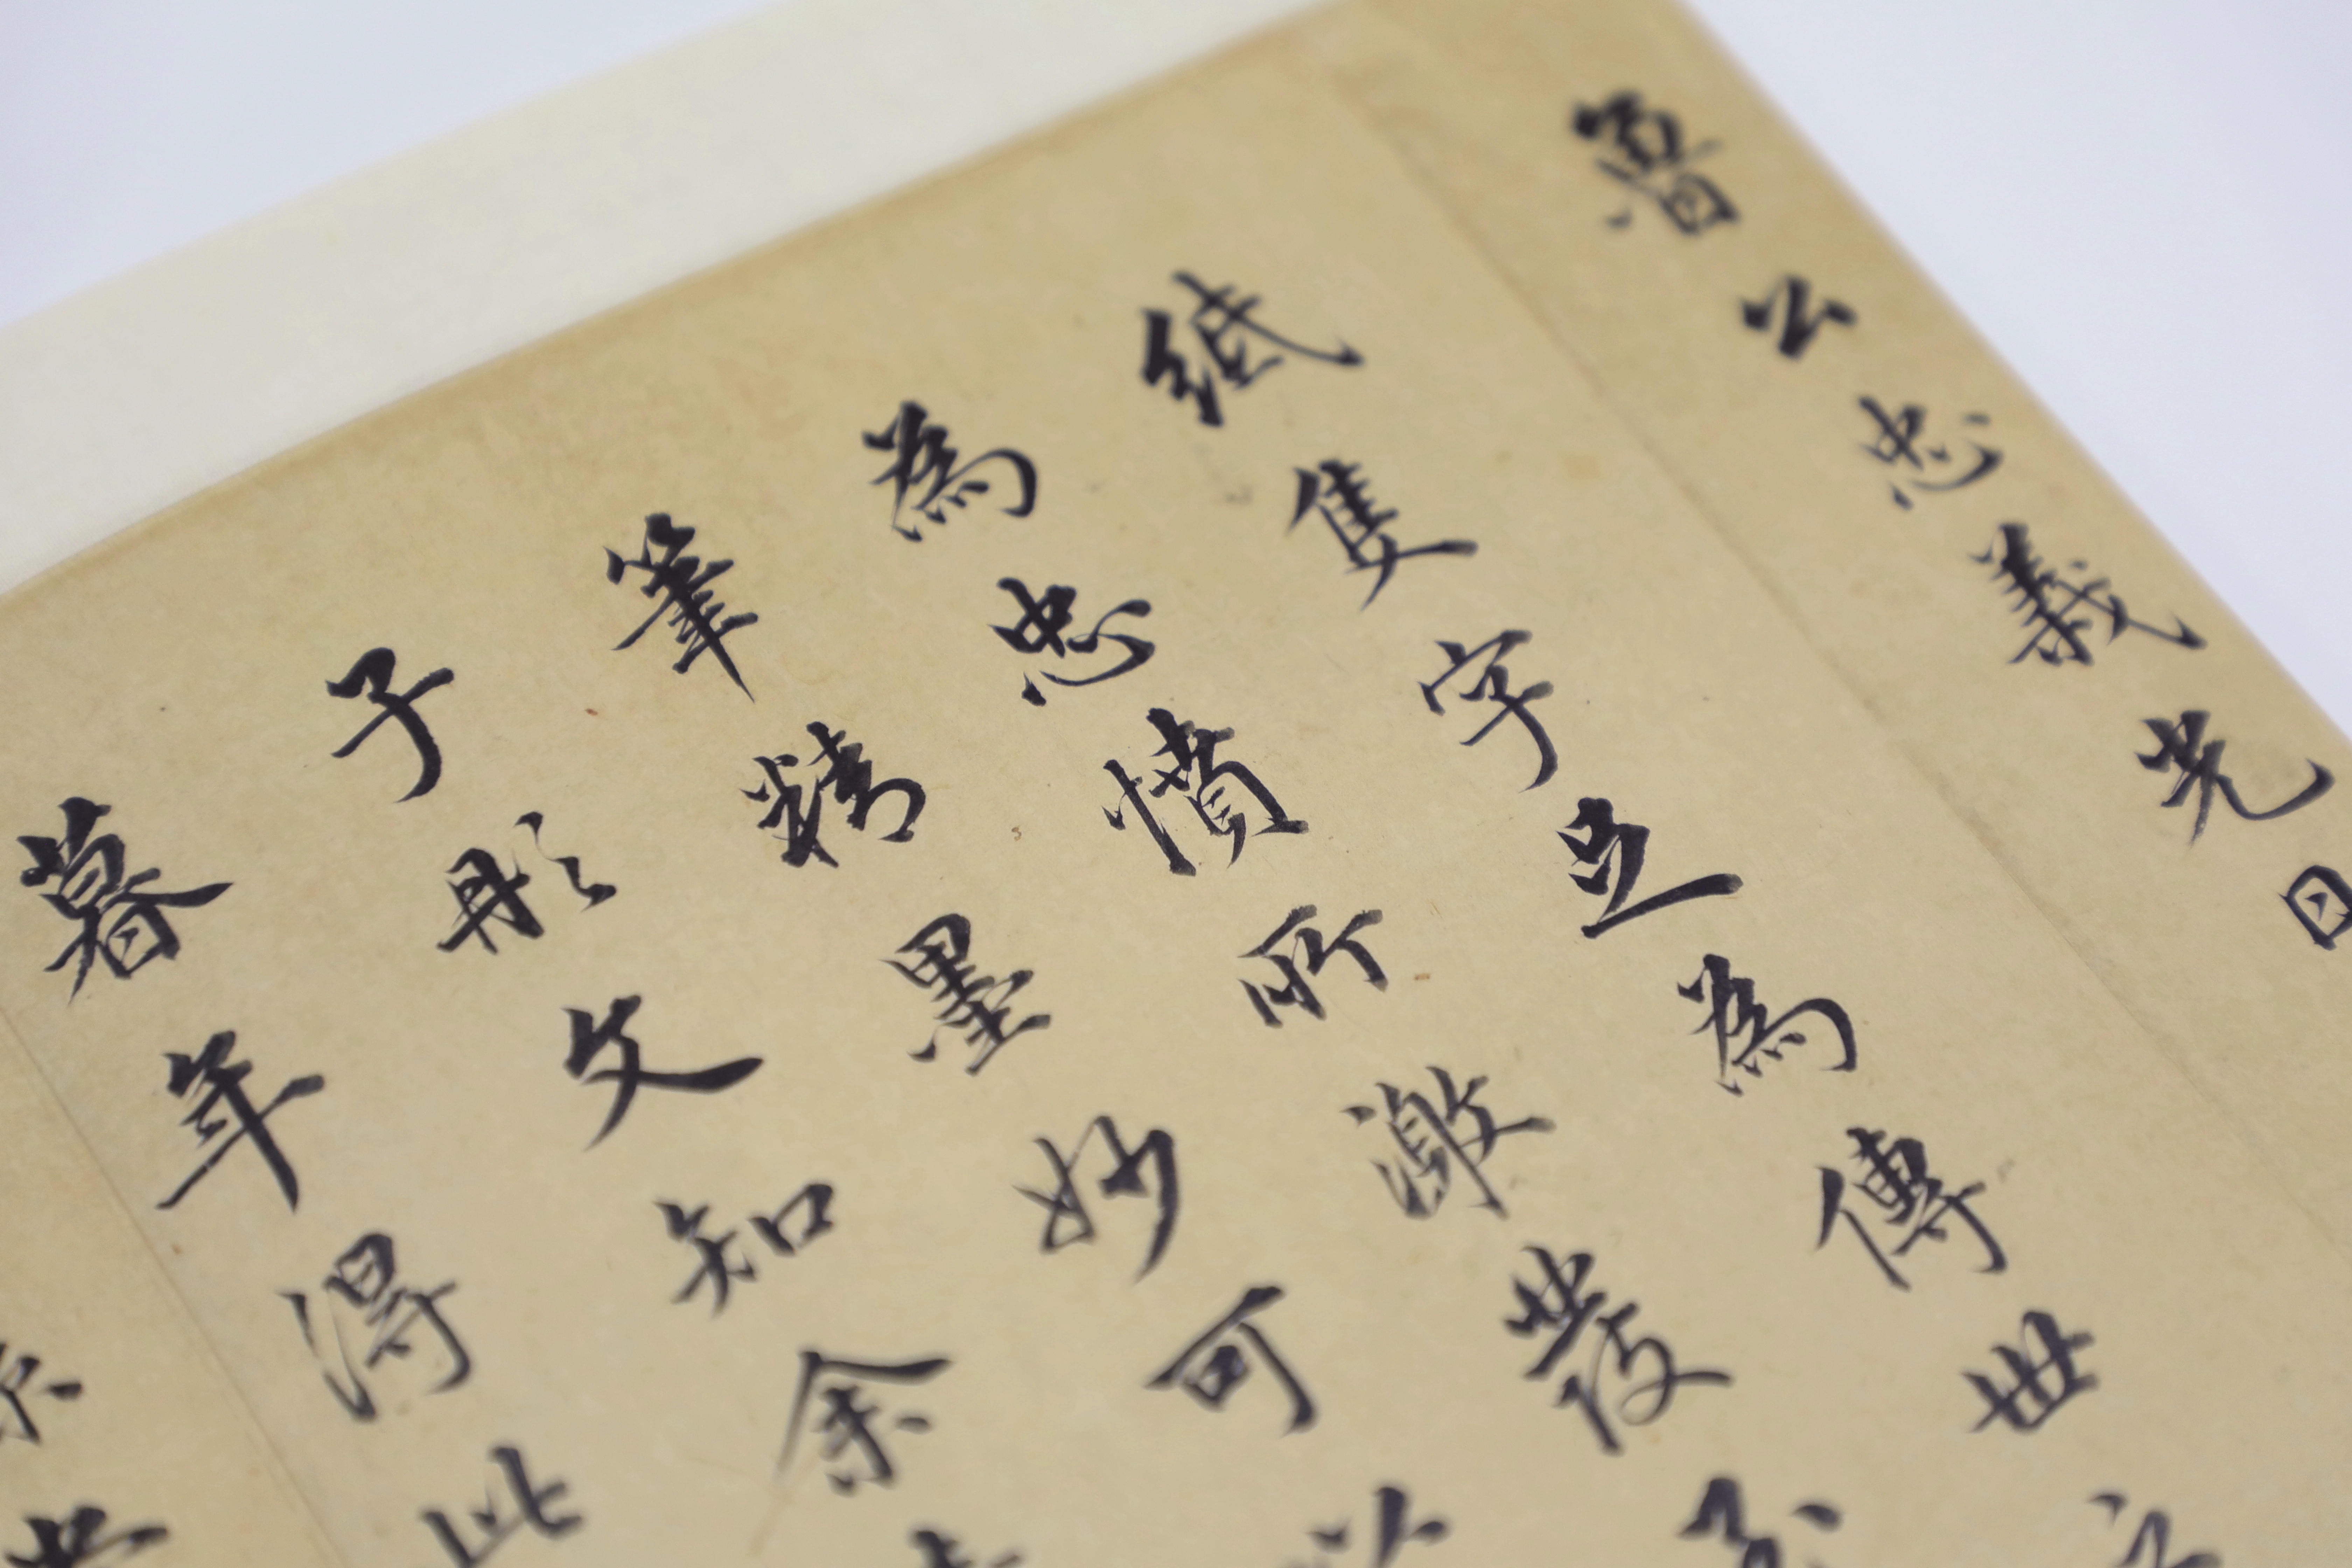 魯公忠義光日
紙隻字足為傳世
為忠憤所激發至
筆精墨妙可以
子彤文知余
暮年得此